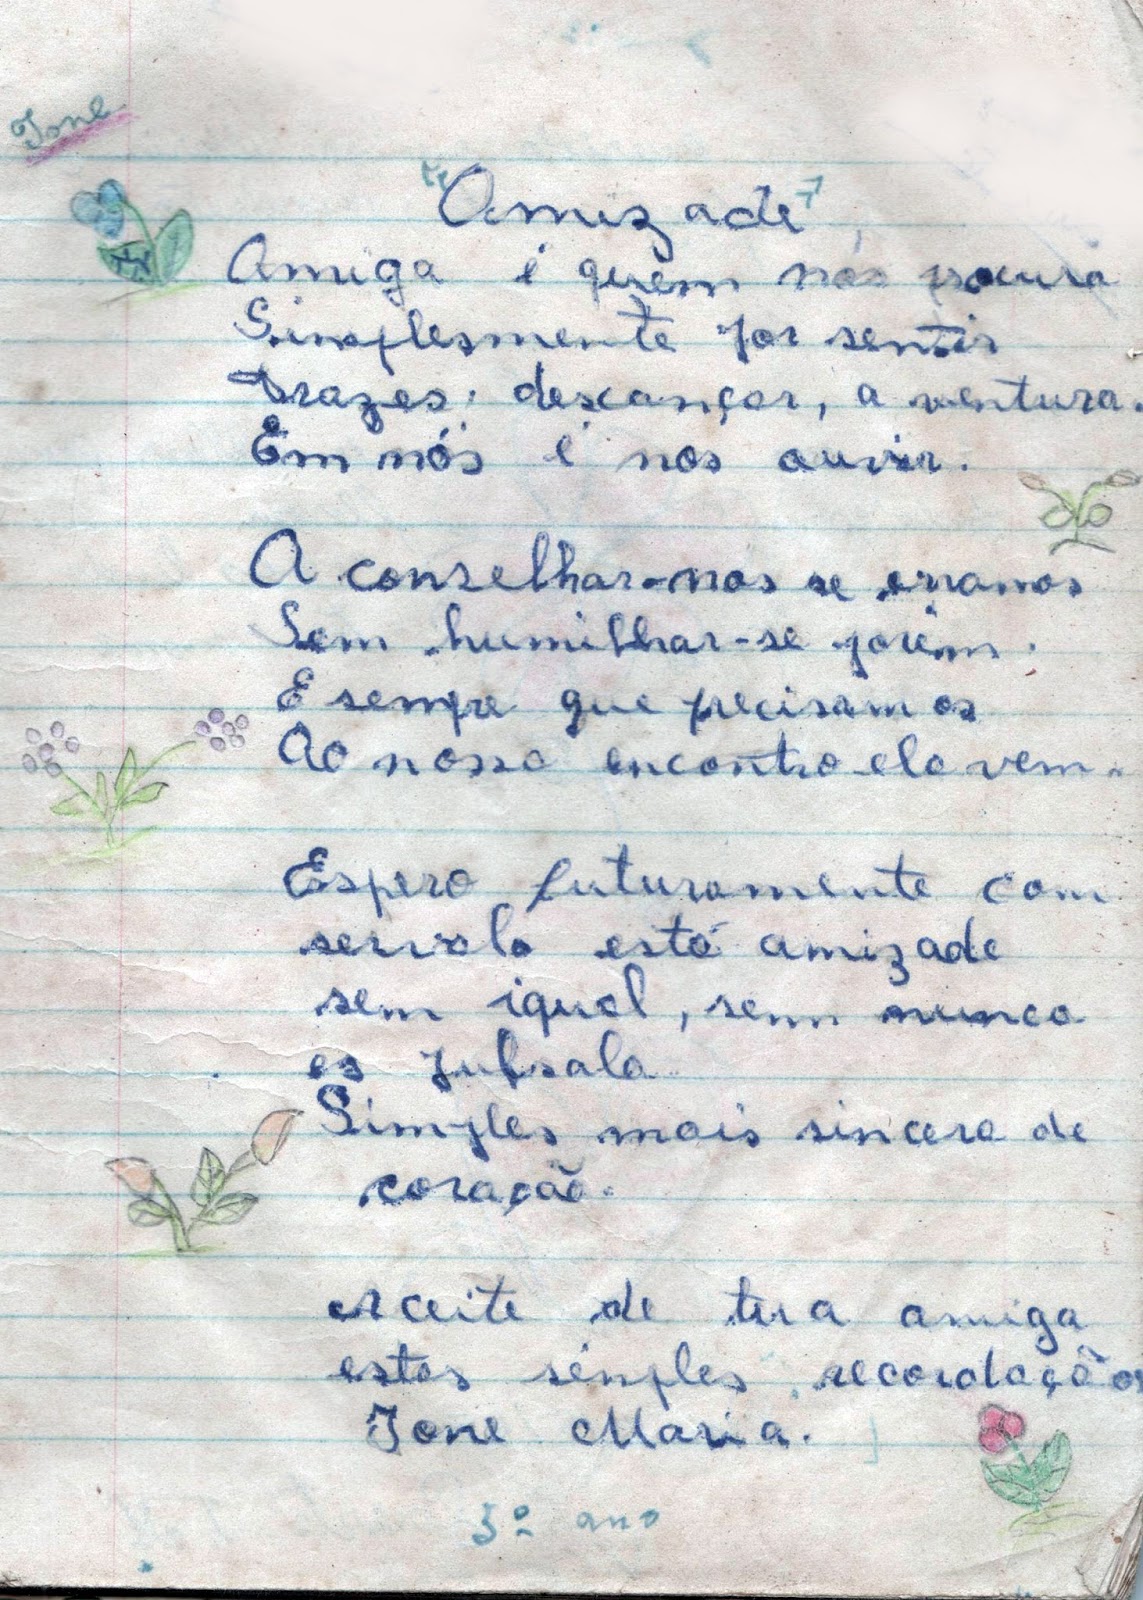 Ione
"Amizade"
Amiga é quem nos procura
Simplesmente por sentir
Prazes, descançar, a ventura.
Em nós é nos ouvir.
A conselhar-nos se erramos
Sem humilhar-se porém.
E sempre que precisamos
Ao nosso encontro ela vem.
Espero futuramente com
servala está amizade
sem igual, sem nunca
es
Simples mais sincera de
coração.
Aceite de tua amiga
estas simples recordação
Ione Maria.
5º ano